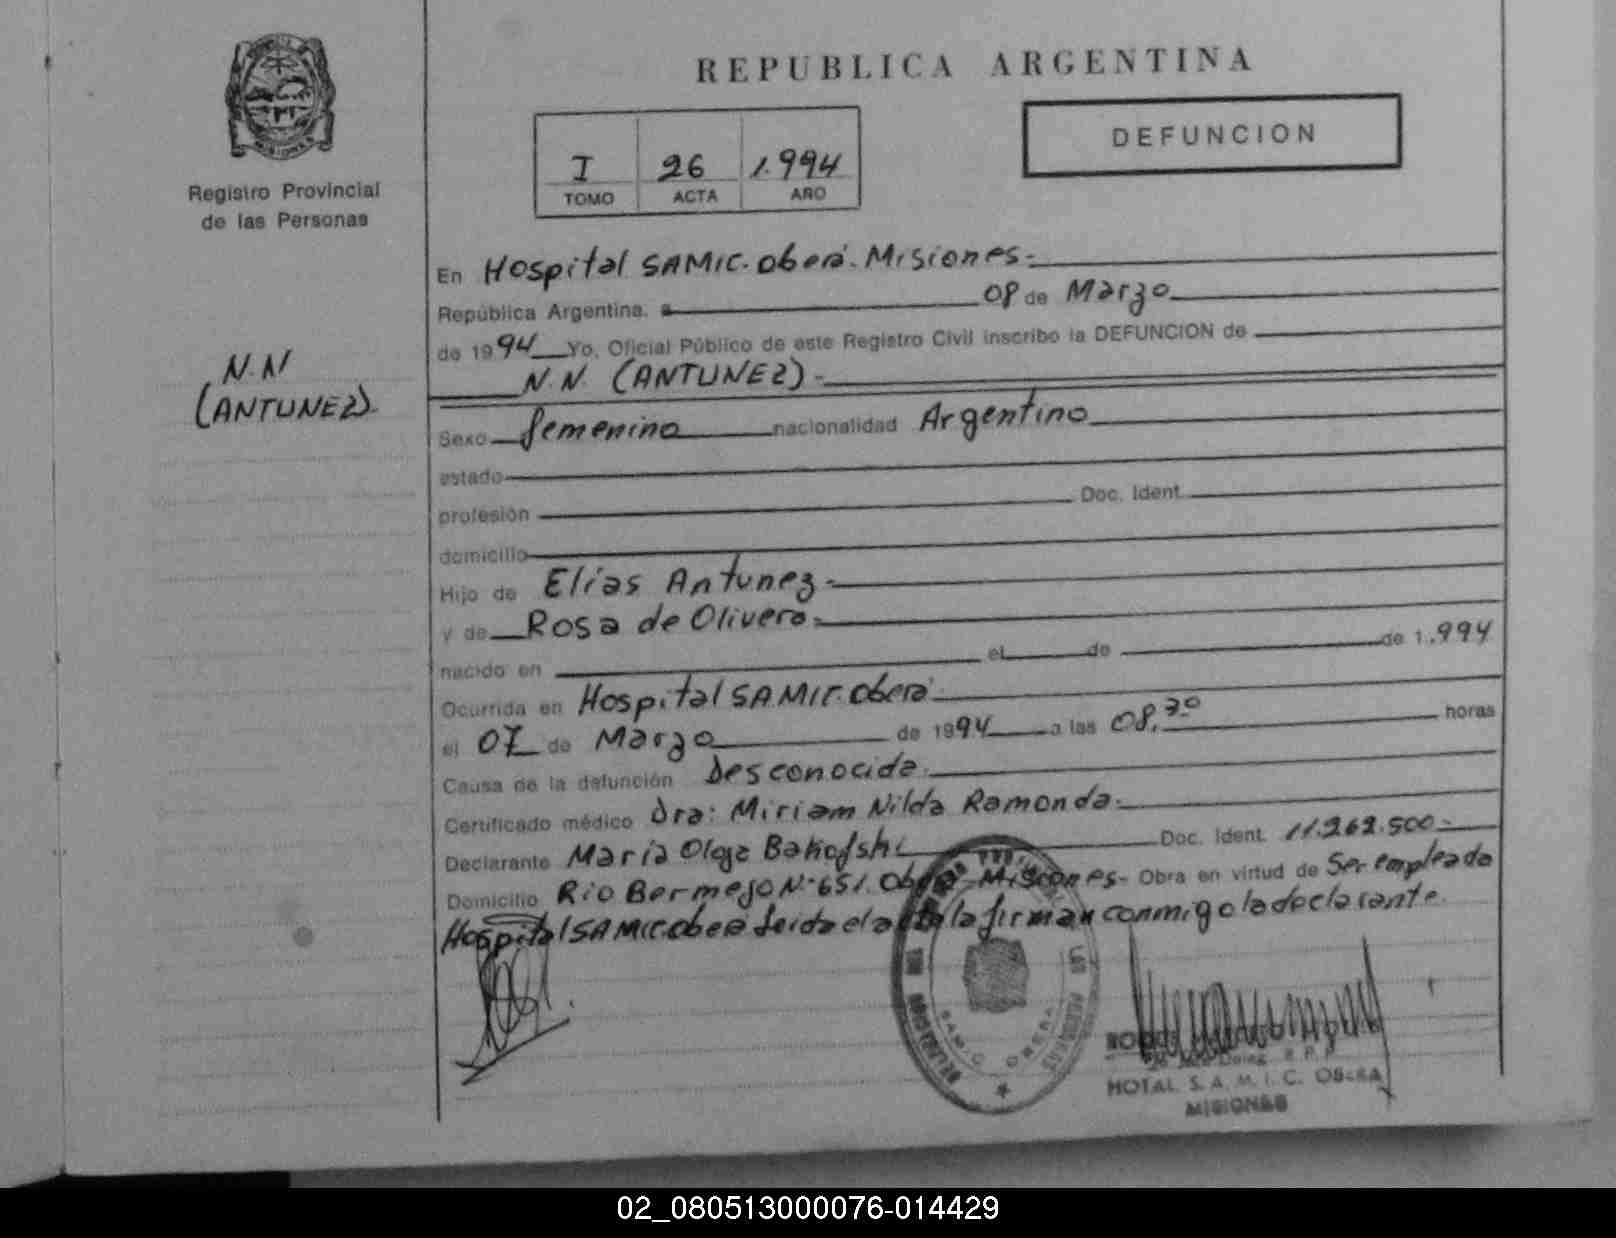 REPUBLICA ARGENTINA
MISIONES
Registro Provincial
de las Personas
I 26 1.994
TOMO ACTA AÑO
DEFUNCION
N.N
(ANTUNEZ).
En Hospital SAMIC. Oberá. Misiones.-
República Argentina, a 08 de Marzo
de 1994 Yo, Oficial Público de este Registro Civil inscribo la DEFUNCION de
N.N. (ANTUNEZ)-
Sexo femenino nacionalidad Argentino
estado
profesión Doc. Ident.
domicilio
Hijo de Elias Antunez-
y de Rosa de Olivera-
nacido en el de de 1.994
Ocurrida en Hospital SAMIC. Oberá.
el 07 de Marzo de 1994 a las 08,30 horas
Causa de la defunción Desconocida.
Certificado médico Dra: Miriam Nilda Ramonda.
Declarante María Olga Doc. Ident. 11.262.500-
Domicilio Rio Bermejo Nº 651. Oberá- Misiones- Obra en virtud de Ser empleada
Hospital SAMIC. Oberá Leida el acta la firman conmigo la declarante.
SAMIC OBERA
HOTAL. S. A. M. I. C. OBERA
MISIONES
02_080513000076-014429